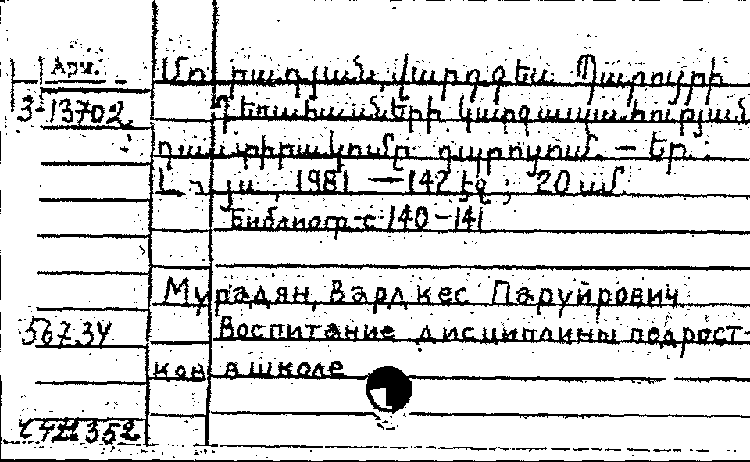 Арм.
Մուրադյան, Վարդգես Պարույրի
3-13702
Դեռահասների կարգապահության
դաստիրակումը դպրոցում. — Եր.:
Լույս, 1981 — 142 էջ; 20 սմ.
Библиогр.: с 140-141
Мурадян, Вардкес Паруйрович
56734
Воспитание дисциплины подрост-
ков в школе
352